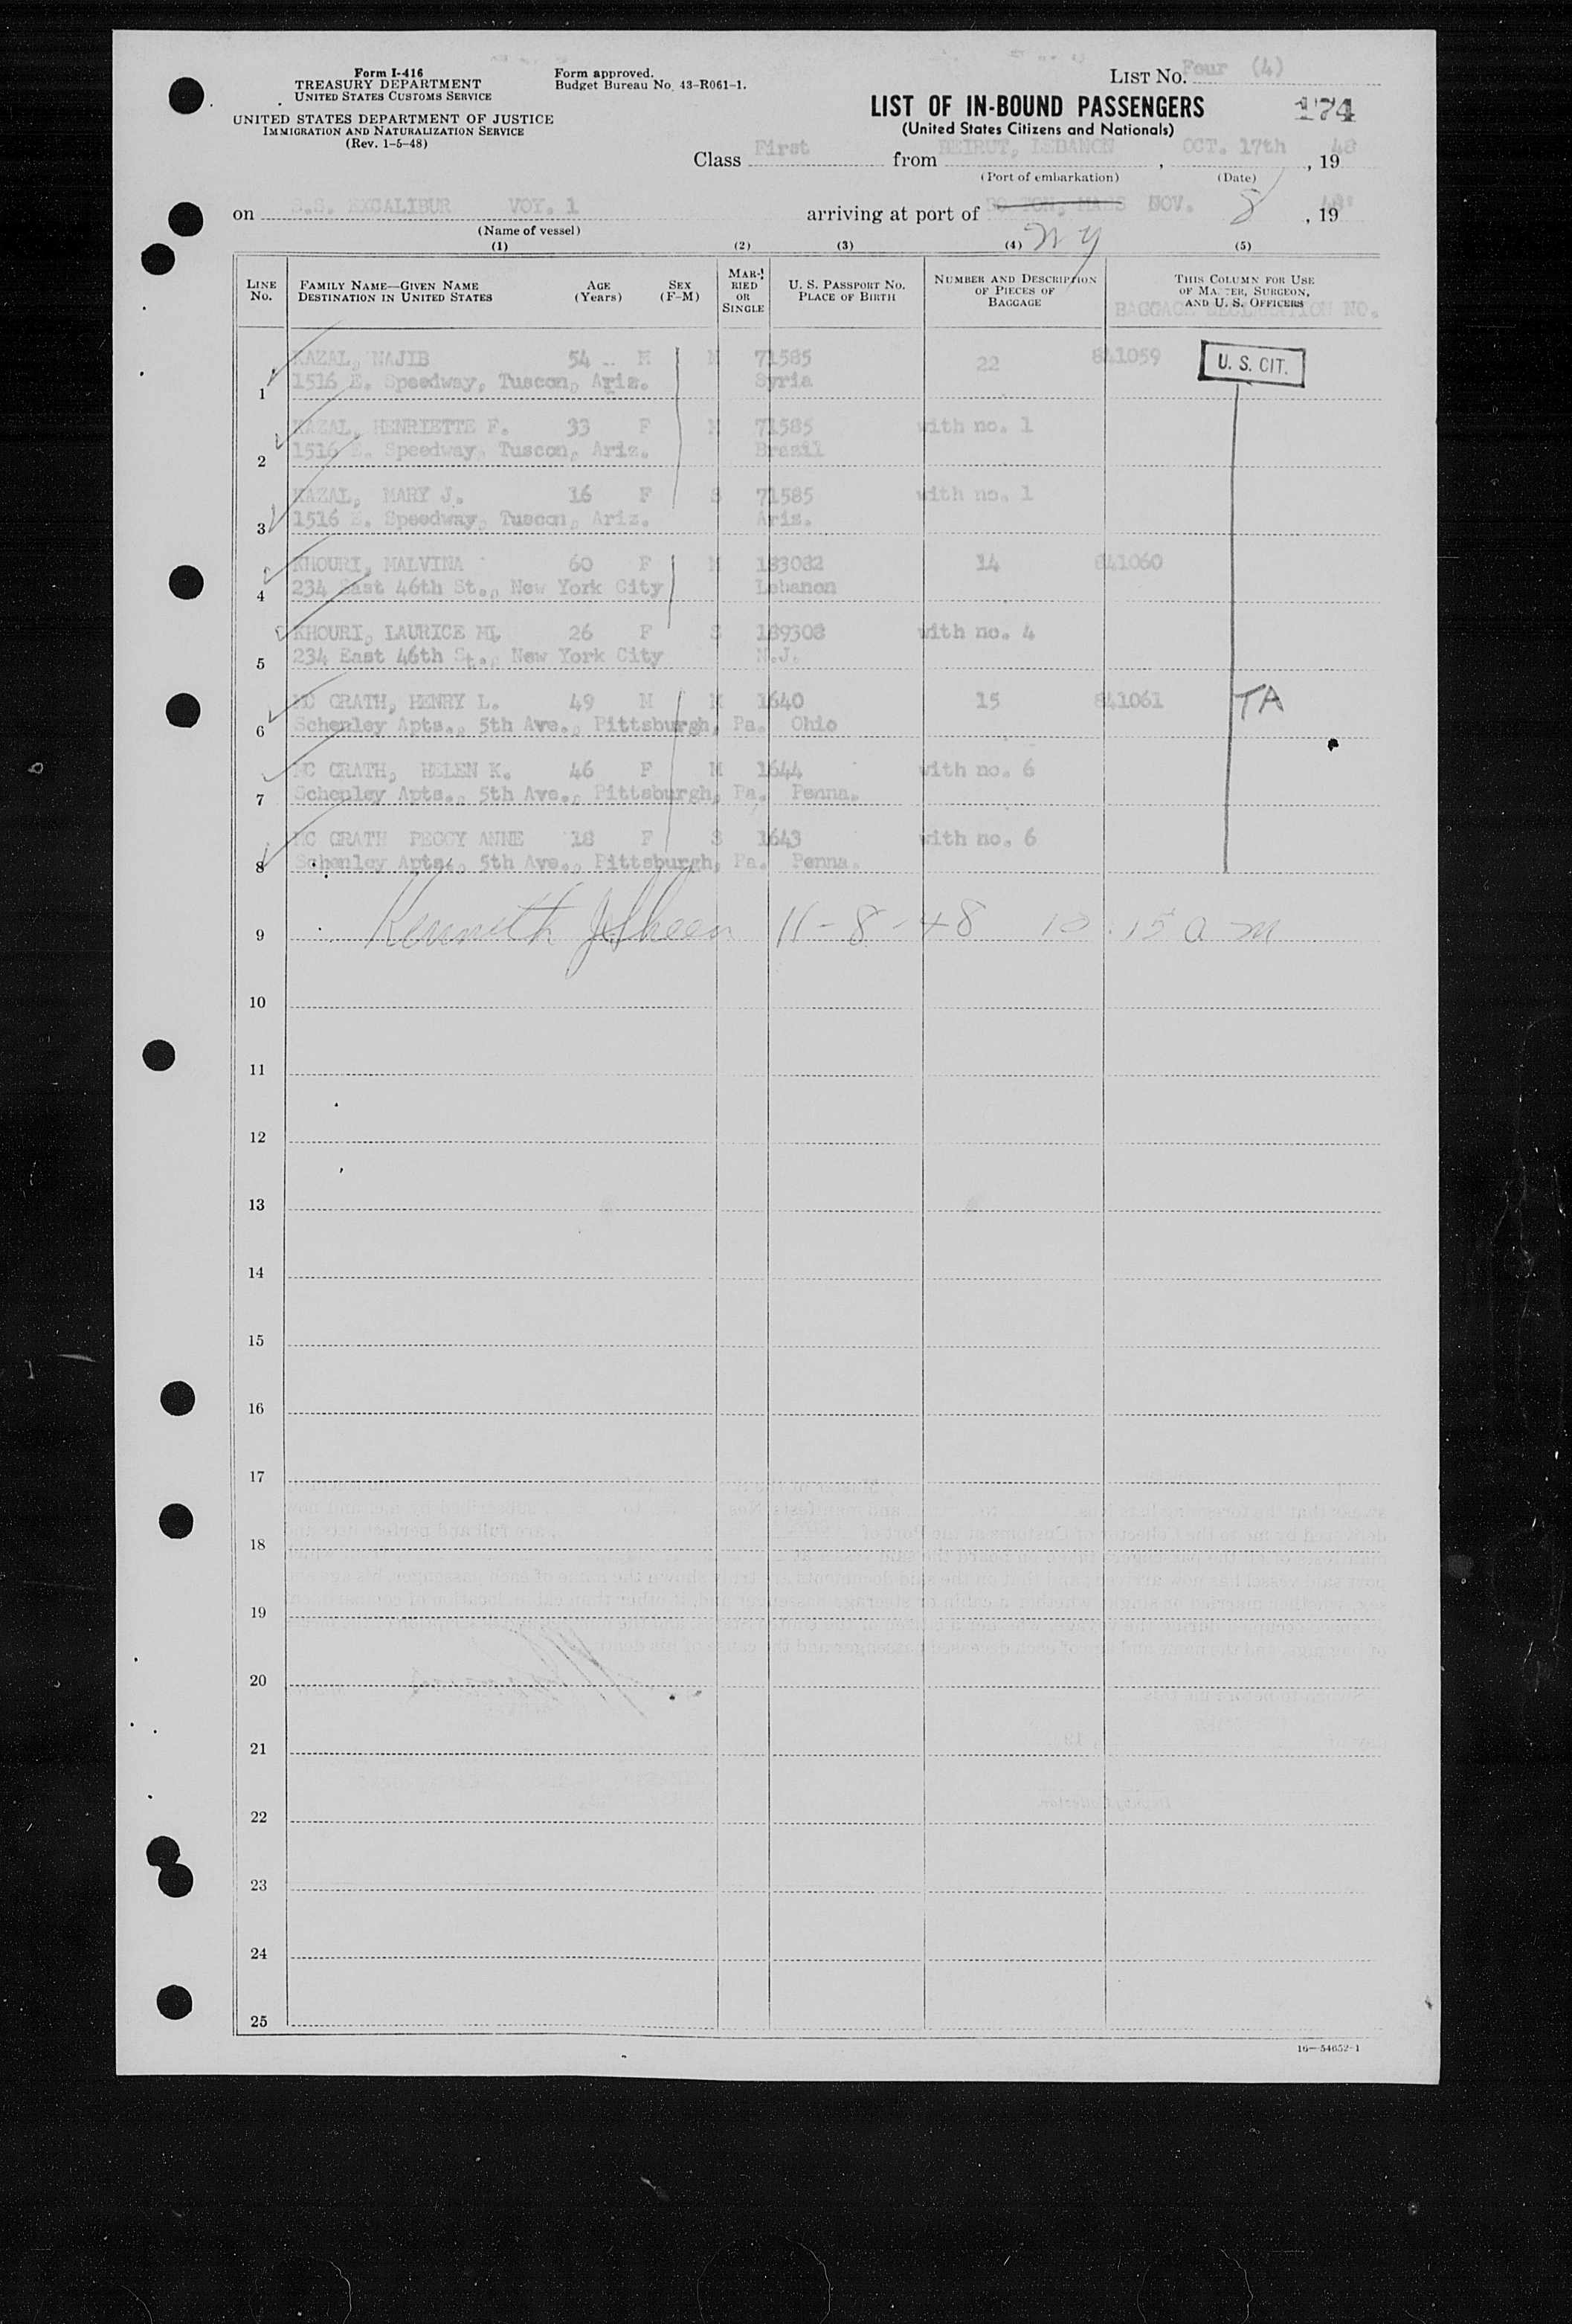 Form I-416
TREASURY DEPARTMENT
UNITED STATES CUSTOMS SERVICE
UNITED STATES DEPARTMENT OF JUSTICE
IMMIGRATION AND NATURALIZATION SERVICE
(Rev. 1-5-48)
Form approved.
Budget Bureau No. 43-R061-1.
LIST No. Four (4)
LIST OF IN-BOUND PASSENGERS
174
(United States Citizens and Nationals)
Class First from BEIRUT, LEBANON, OCT. 17th, 19 48
(Port of embarkation) (Date)
on S.S. EXCALIBUR VOY. 1 arriving at port of BOSTON, MASS NOV. 8, 19 48
(Name of vessel)
N Y
(1) (2) (3) (4) (5)
LINE No. FAMILY NAME—GIVEN NAME DESTINATION IN UNITED STATES AGE (Years) SEX (F-M) MARRIED OR SINGLE U. S. PASSPORT NO. PLACE OF BIRTH NUMBER AND DESCRIPTION OF PIECES OF BAGGAGE THIS COLUMN FOR USE OF MASTER, SURGEON, AND U. S. OFFICERS
BAGGAGE DECLARATION NO.
KAZAL, NAJIB 54 M M 71585 22 841059 U. S. CIT.
1 1516 E. Speedway, Tuscon, Ariz. Syria
KAZAL, HENRIETTE F. 33 F M 71585 with no. 1
2 1516 E. Speedway, Tuscon, Ariz. Brazil
KAZAL, MARY J. 16 F S 71585 with no. 1
3 1516 E. Speedway, Tuscon, Ariz. Ariz.
KHOURI, MALVINA 60 F M 183082 14 841060
4 234 East 46th St., New York City Lebanon
KHOURI, LAURICE M. 26 F S 189308 with no. 4
5 234 East 46th St., New York City N.J.
MC GRATH, HENRY L. 49 M M 1640 15 841061 TA
6 Schenley Apts., 5th Ave., Pittsburgh, Pa. Ohio
MC GRATH, HELEN K. 46 F M 1644 with no. 6
7 Schenley Apts., 5th Ave., Pittsburgh, Pa. Penna.
MC GRATH PEGGY ANNE 18 F S 1643 with no. 6
8 Schenley Apts., 5th Ave., Pittsburgh, Pa. Penna.
9 Kenneth 11-8-48 10:15 a m
10
11
12
13
14
15
16
17
18
19
20
21
22
23
24
25
16—54652-1